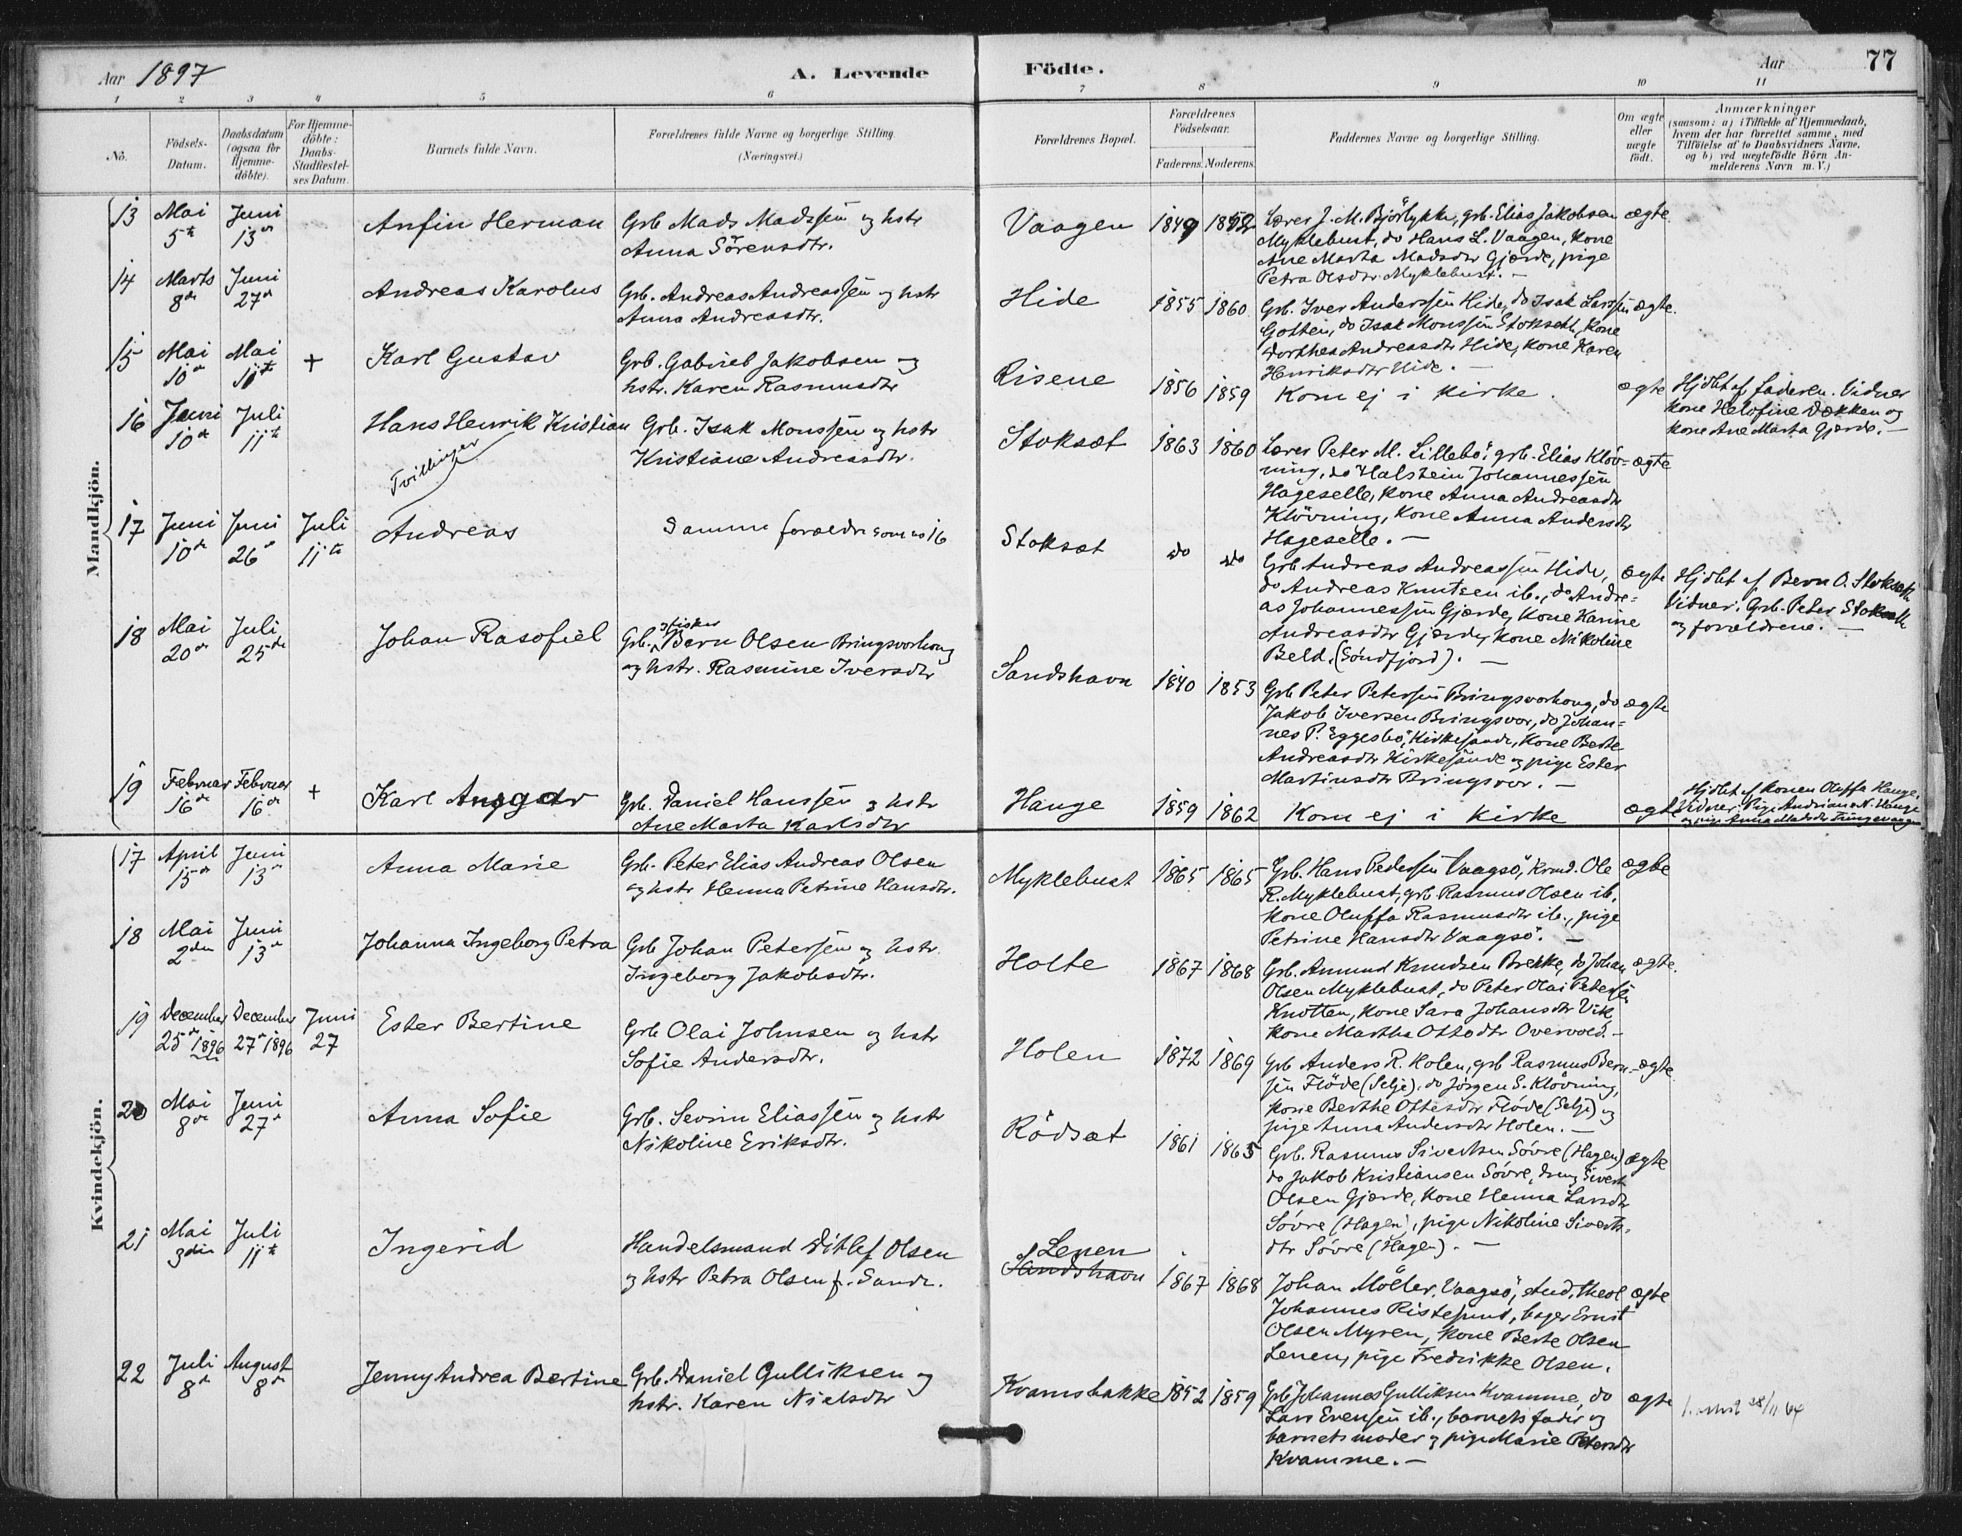 Aar 1897 A. Levende Födte. Aar 77
1 2 3 4 5 6 7 8 9 10 11
No.
Födsels-
Datum.
Daabsdatum
(ogsaa for
Hjemme-
döbte).
For Hjemme-
döbte:
Daabs-
Stadfæstel-
ses Datum.
Barnets fulde Navn.
Forældrenes fulde Navne og borgerlige Stilling.
(Næringsvei.)
Forældrenes Bopæl.
Forældrenes
Födselsaar.
Faderens. Moderens.
Faddernes Navne og borgerlige Stilling.
Om ægte
eller
uægte
født.
Anmærkninger
(saasom: a) i Tilfælde af Hjemmedaab,
hvem der har forrettet samme, med
Tilföielse af to Daabsvidners Navne,
og b) ved uegtefödte Börn An-
melderens Navn m. V.)
Mandkjön.
13 Mai 5te Juni 13de Anfin Herman
Grb Mads Madssen og hstr
Anna Sörensdtr.
Vaagen 1849 1852
Lærer J. M. Bjørlykke, grb. Elias Jakobsen
Myklebust, do Hans L. Vaagen, Kone
Ane Marta Madsdtr Gjærde, pige
Petra Olsdtr Myklebust. —
ægte
14 Marts 8de Juni 27de Andreas Karolus
Grb. Andreas Andreassen og hstr
Anna Andreasdtr.
Hide 1855 1860
Grb. Iver Anderssen Hide, do Isak Larssen
Gotten, do Isak Monssen Stoksætt, Kone
Dorthea Andreasdtr Hide, kone Karen
Henriksdtr Hide. —
ægte.
15 Mai 10de Mai 11te + Karl Gustav
Grb. Gabriel Jakobsen og
hstr. Karen Rasmusdtr
Risene 1856 1859
Kom ej i kirke.
ægte
Hjdbt af faderen. Vidner
kone Helofine Dækken og
kone Ane Marta Gjærde. —
16 Juni 10de Juli 11te Hans Henrik Kristian
Tvillinger
Grb. Isak Monssen og hstr
Kristiane Andreasdtr.
Stoksæt 1863 1860
Lærer Peter M. Lillebö, grb. Elias Kløv-
ning, do Halstein Johannessen
Hageselle, kone Anna Andreasdtr
Klövning, kone Anna Andersdtr
Hageselle. —
ægte
17 Juni 10de Juni 26de Juli 11te Andreas
Samme forældre som no 16
Stoksæt do do
Grb Andreas Andreassen Hide,
do Andreas Knutsen ib., do Andre-
as Johannessen Gjærde, Kone Karine
Andreasdtr Gjærde, kone Nikoline
Beld, (Söndfjord). —
ægte
Hjdbt af Bern O. Stoksæth
Vidner: Grb. Peter Stoksæth
og forældrene. —
18 Mai 20de Juli 25de Johan Rasofiel
Grb. og fisker Bern Olsen Bringsvorhoug
og hstr. Rasmine Iversdtr
Sandshavn 1840 1853
Grb Peter Petersen Bringsvorhoug, do
Jakob Iversen Bringsvor, do Johan-
nes P. Eggesbö, Kirkesande, Kone Berte
Andreasdtr Kirkesande og pige Ester
Martinsdtr Bringsvor. —
ægte
19 Februar 16de Februar 16de + Karl Ansgar
Grb. Daniel Hanssen og hstr
Ane Marta Karlsdtr
Hauge 1859 1862
Kom ej i kirke
ægte
Hjdbt af konen Oluffa Hauge.
Vidner: Pige Andriane N. Hauge
og pige Anna Madsdtr
Kvindekjön.
17 April 15de Juni 13de Anna Marie
Grb. Peter Elias Andreas Olsen
og hstr Henna Petrine Hansdtr.
Myklebust 1865 1865
Grb. Hans Pedersen Vaagsö, Krmd. Ole
R. Myklebust, grb Rasmus Olsen ib.
kone Oluffa Rasmusdtr ib., pige
Petrine Hansdtr Vaagsö. —
ægte
18 Mai 2den Juni 13de Johanna Ingeborg Petra
Grb Johan Petersen og hstr.
Ingeborg Jakobsdtr.
Holte 1867 1868
Grb. Amund Knudsen Brekke, do Johan
Olsen Myklebust, do Peter Olai Petersen
Knotten, kone Sara Johansdtr Vik
kone Martha Ottodtr Overvold. —
ægte.
19 December 25de 1896 December 27de 1896 Juni 27 Ester Bertine
Grb Olai Johnsen og hstr
Sofie Andersdtr.
Holen 1872 1869
Grb Anders R. Holen, grb Rasmus Bern-
sen Flöde (Selje), do Jørgen S. Klövning,
kone Berthe Ottesdtr Flöde (Selje) og
pige Anna Andersdtr Holen. —
ægte.
20 Mai 8de Juni 27de Anna Sofie
Grb. Sevrin Eliassen og hstr
Nikoline Eriksdtr.
Rödsæt 1861 1865
Grb. Rasmus Sivertsen Sövre (Hagen)
do Jakob Kristiansen Sövre, dreng Sivert
Olsen Gjærde, kone Henna Larsdtr
Sövre (Hagen), pige Nikoline Siverts-
dtr Sövre (Hagen). —
ægte
21 Mai 3die Juli 11te Ingerid
Handelsmand Ditlef Olsen
og hstr Petra Olsen f. Sande.
Lenen
Sandshavn 1867 1868
Johan Möller, Vaagsö, stud. theol
Johannes Ristesund, bager Ernst
Olsen Myren, kone Berte Olsen
Lenen, pige Fredrikke Olsen.
ægte
22 Juli 8de August 8de Jenny Andrea Bertine
Grb. Daniel Gulliksen og
hstr. Karen Nielsdtr
Kvamsbakke 1852 1859
Grb Johannes Gulliksen Kvamme, do
Lars Evensen ib., barnets fader og
barnets moder og pige Marie Petersdtr
Kvamme. —
ægte
28/11 64